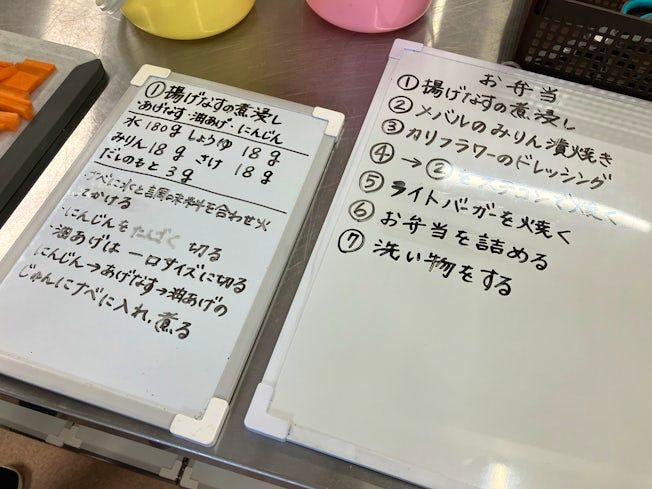 ①揚げなすの煮浸し
・あげなす・油あげ・にんじん
水 180g しょうゆ 18g
みりん 18g さけ 18g
だしのもと 3g
ナベに水と調味料を合わせ火
かける
・にんじんをたんざく切る
・油あげは一口サイズに切る
にんじん→あげなす→油あげの
じゅんにナベに入れ、煮る
お弁当
①揚げなすの煮浸し
②メバルのみりん漬焼き
③カリフラワーのドレッシング
④→②をスチコンで焼く
⑤ライトバーガーを焼く
⑥お弁当を詰める
⑦洗い物をする